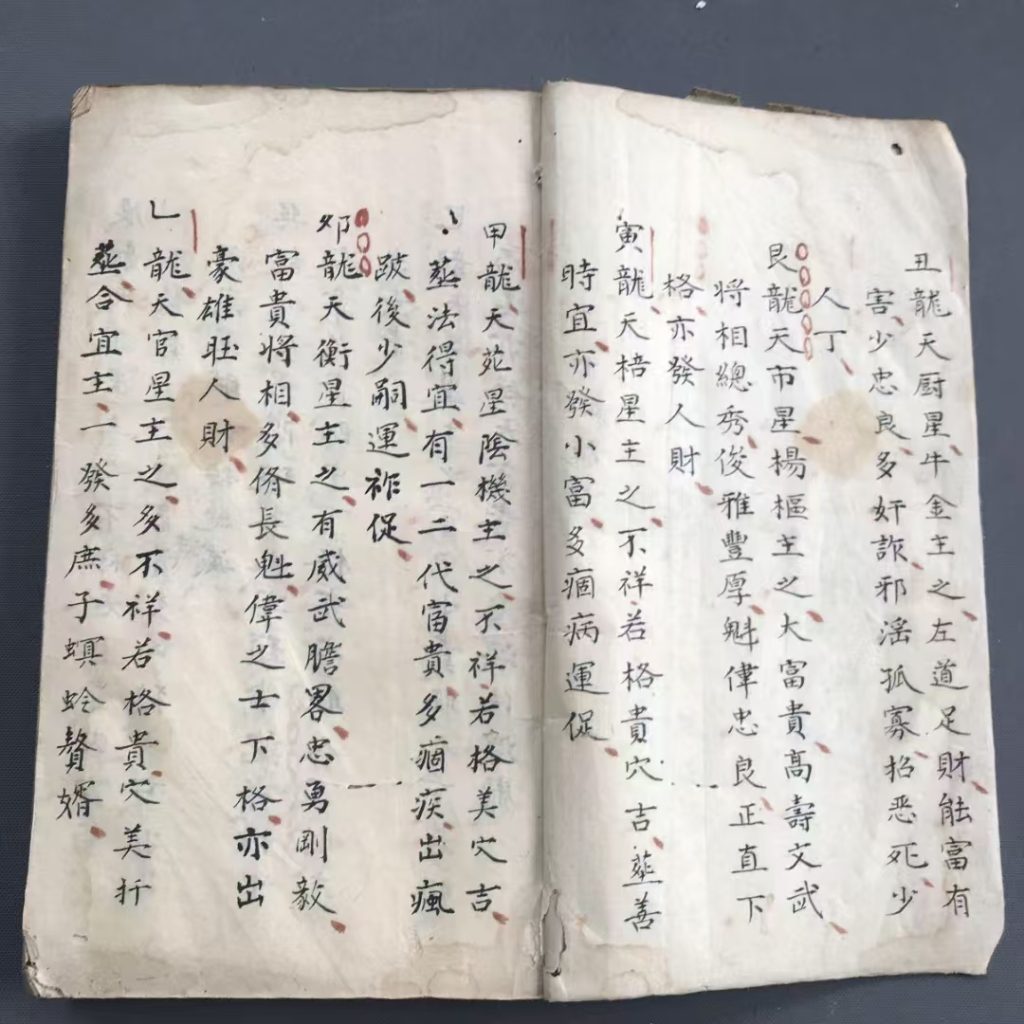 丑龍天厨星牛金主之左道足財能富有
害少忠良多奸詐邪滛孤寡招恶死少
人丁
艮龍天市星楊樞主之大富貴高壽文武
将相總秀俊雅豐厚魁偉忠良正直下
格亦發人財
寅龍天棓星主之不祥若格貴穴吉塟善
時宜亦發小富多痼病運促
甲龍天苑星陰機主之不祥若格美穴吉
塟法得宜有一二代富貴多痼疾出瘋
跛後少嗣運祚促
夘龍天衡星主之有威武膽畧忠勇剛毅
富貴将相多脩長魁偉之士下格亦出
豪雄旺人財
乚龍天官星主之多不祥若格貴穴美扦
塟合宜主一發多庶子螟蛉贅婿